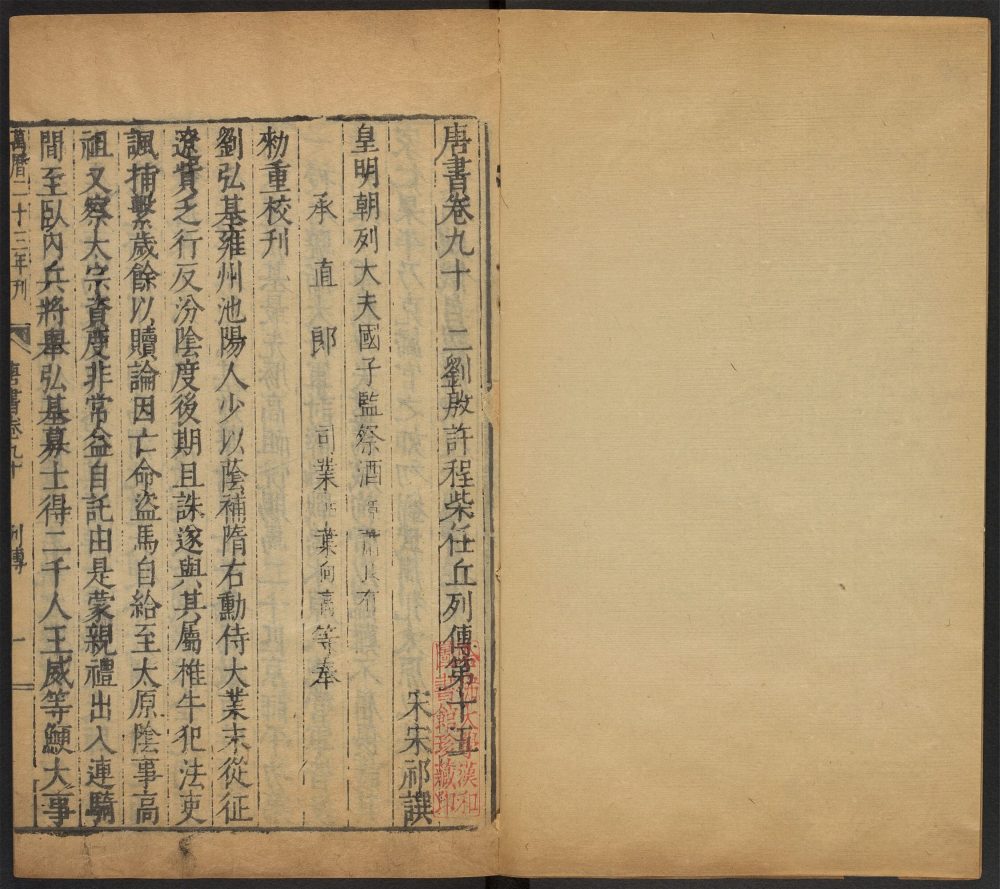 唐書卷九十 二劉殷許程柴任丘列傳第十五
宋宋祁譔
皇明朝列大夫國子監祭酒
承直郎 司業 葉向高等奉
勑重校刊
劉弘基雍州池陽人少以蔭補隋右勳侍大業末從征
遼貲乏行及汾陰度後期且誅遂與其屬椎牛犯法吏
諷捕繫歲餘以贖論因亡命盜馬自給至太原陰事高
祖又察太宗資度非常益自託由是蒙親禮出入連騎
間至臥內兵將舉弘基募士得二千人王威等鯁大事
萬曆二十三年刊 唐書卷九十 列傳 一
哈佛大學漢和
圖書館珍藏印